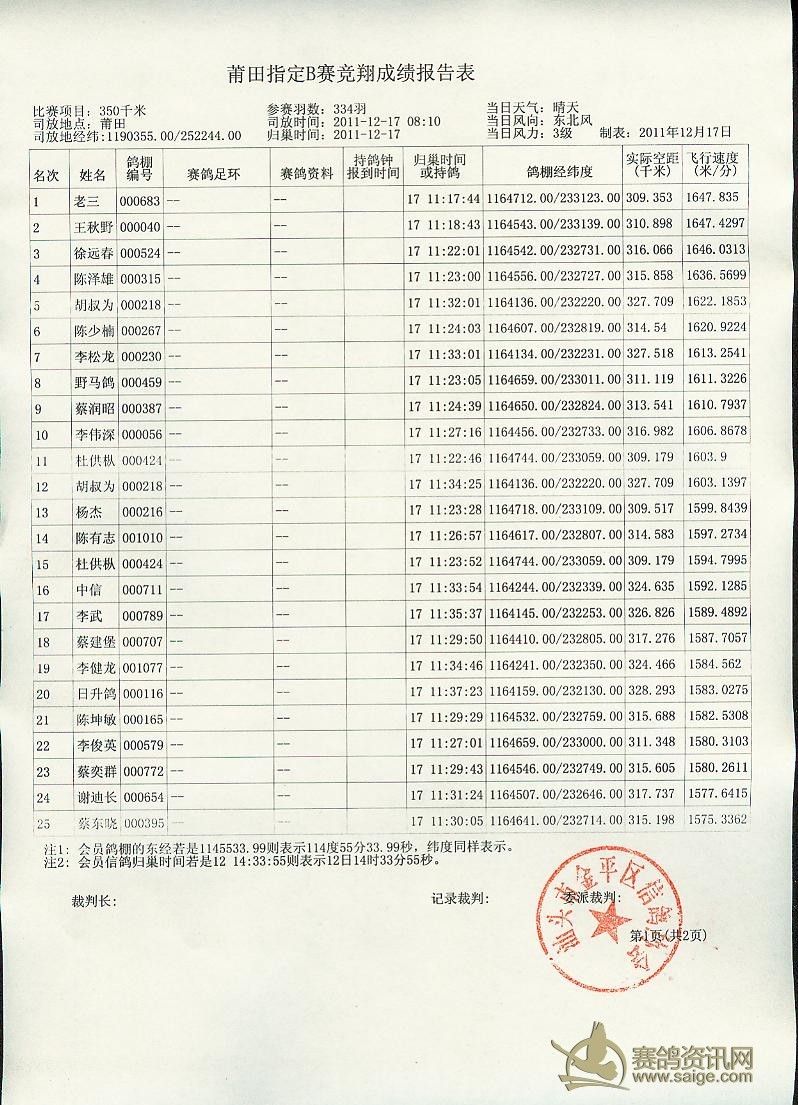 莆田指定B赛竞翔成绩报告表
比赛项目: 350千米 参赛羽数: 334羽 当日天气: 晴天
司放地点: 莆田 司放时间: 2011-12-17 08:10 当日风向: 东北风
司放地经纬:1190355.00/252244.00 归巢时间: 2011-12-17 当日风力: 3级 制表: 2011年12月17日
名次 姓名 鸽棚编号 赛鸽足环 赛鸽资料 持鸽钟报到时间 归巢时间或持鸽 鸽棚经纬度 实际空距(千米) 飞行速度(米/分)
1 老三 000683 -- -- 17 11:17:44 1164712.00/233123.00 309.353 1647.835
2 王秋野 000040 -- -- 17 11:18:43 1164543.00/233139.00 310.898 1647.4297
3 徐远春 000524 -- -- 17 11:22:01 1164542.00/232731.00 316.066 1646.0313
4 陈泽雄 000315 -- -- 17 11:23:00 1164556.00/232727.00 315.858 1636.5699
5 胡叔为 000218 -- -- 17 11:32:01 1164136.00/232220.00 327.709 1622.1853
6 陈少楠 000267 -- -- 17 11:24:03 1164607.00/232819.00 314.54 1620.9224
7 李松龙 000230 -- -- 17 11:33:01 1164134.00/232231.00 327.518 1613.2541
8 野马鸽 000459 -- -- 17 11:23:05 1164659.00/233011.00 311.119 1611.3226
9 蔡润昭 000387 -- -- 17 11:24:39 1164650.00/232824.00 313.541 1610.7937
10 李伟深 000056 -- -- 17 11:27:16 1164456.00/232733.00 316.982 1606.8678
11 杜供枞 000424 -- -- 17 11:22:46 1164744.00/233059.00 309.179 1603.9
12 胡叔为 000218 -- -- 17 11:34:25 1164136.00/232220.00 327.709 1603.1397
13 杨杰 000216 -- -- 17 11:23:28 1164718.00/233109.00 309.517 1599.8439
14 陈有志 001010 -- -- 17 11:26:57 1164617.00/232807.00 314.583 1597.2734
15 杜供枞 000424 -- -- 17 11:23:52 1164744.00/233059.00 309.179 1594.7995
16 中信 000711 -- -- 17 11:33:54 1164244.00/232339.00 324.635 1592.1285
17 李武 000789 -- -- 17 11:35:37 1164145.00/232253.00 326.826 1589.4892
18 蔡建堡 000707 -- -- 17 11:29:50 1164410.00/232805.00 317.276 1587.7057
19 李健龙 001077 -- -- 17 11:34:46 1164241.00/232350.00 324.466 1584.562
20 日升鸽 000116 -- -- 17 11:37:23 1164159.00/232130.00 328.293 1583.0275
21 陈坤敏 000165 -- -- 17 11:29:29 1164532.00/232759.00 315.688 1582.5308
22 李俊英 000579 -- -- 17 11:27:01 1164659.00/233000.00 311.348 1580.3103
23 蔡奕群 000772 -- -- 17 11:29:43 1164546.00/232749.00 315.605 1580.2611
24 谢迪长 000654 -- -- 17 11:31:24 1164507.00/232646.00 317.737 1577.6415
25 蔡东晓 000395 -- -- 17 11:30:05 1164641.00/232714.00 315.198 1575.3362
注1: 会员鸽棚的东经若是1145533.99则表示114度55分33.99秒, 纬度同样表示。
注2: 会员信鸽归巢时间若是12 14:33:55则表示12日14时33分55秒。
裁判长: 记录裁判: 委派裁判:
汕头市金平区信鸽协会
第1页(共2页)
赛鸽资讯网
www.saige.com